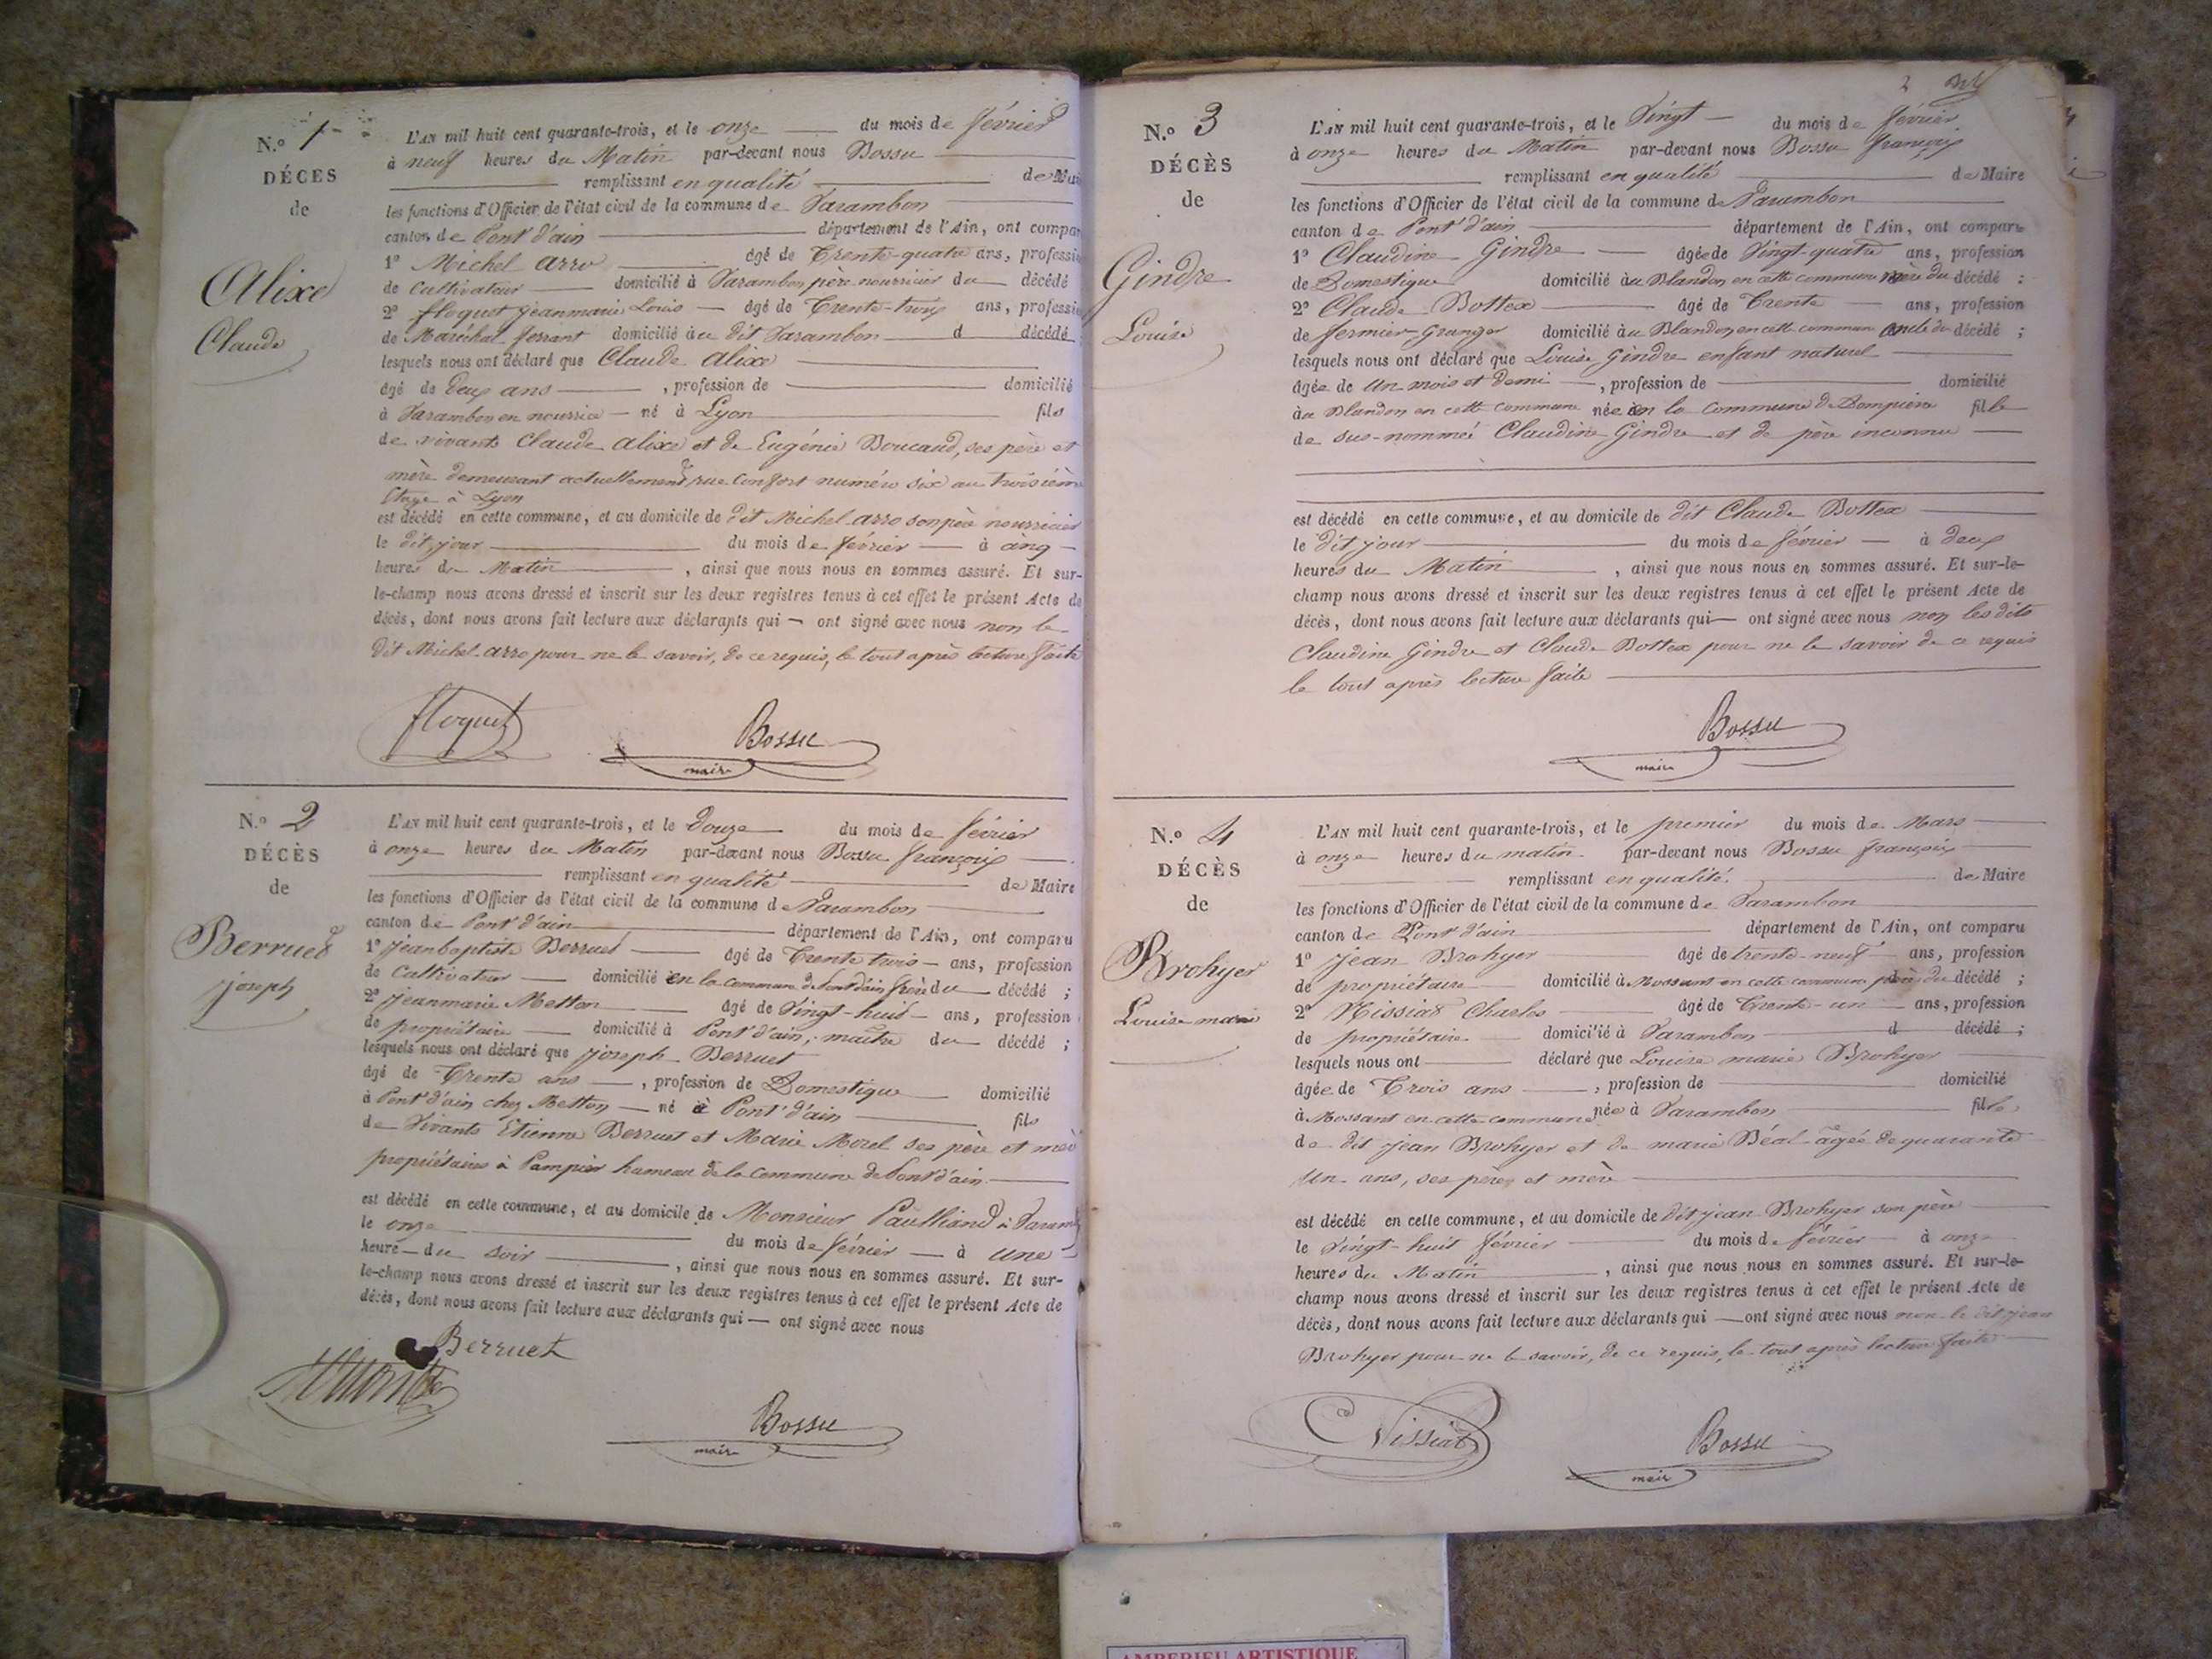 N.o 1
DÉCÈS
de
Alixe
Claude
L'AN mil huit cent quarante-trois, et le onze du mois de février
à neuf heures du Matin par-devant nous Bossu
remplissant en qualité de Mai
les fonctions d'Officier de l'état civil de la commune de Varambon
canton de Pont d'ain département de l'Ain, ont compar
1o Michel arro âgé de Trente-quatre ans, professi
de Cultivateur domicilié à Varambon père nourricier du décédé
2o floquet jeanmarie Louis âgé de Trente-trois ans, professi
de Maréchal ferrant domicilié au dit Varambon d décédé
lesquels nous ont déclaré que Claude alixe
âgé de deux ans, profession de domicilié
à Varambon en nourrice né à Lyon fils
de vivants Claude alixe et de Eugénie Boucaud, ses père et
mère demeurant actuellement rue Confort numéro six au troisième
Etage à Lyon
est décédé en cette commune, et au domicile de dit Michel arro son père nourricier
le dit jour du mois de février à cinq
heures du Matin, ainsi que nous nous en sommes assuré. Et sur-
le-champ nous avons dressé et inscrit sur les deux registres tenus à cet effet le présent Acte de
décès, dont nous avons fait lecture aux déclarants qui ont signé avec nous non le
dit Michel arro pour ne le savoir, de ce requis, le tout après lecture faite
floquet
Bossu
maire
N.o 2
DÉCÈS
de
Berruet
joseph
L'AN mil huit cent quarante-trois, et le douze du mois de février
à onze heures du Matin par-devant nous Bossu françois
remplissant en qualité de Maire
les fonctions d'Officier de l'état civil de la commune de Varambon
canton de Pont d'ain département de l'Ain, ont comparu
1o jeanbaptiste Berruet âgé de Trente trois ans, profession
de Cultivateur domicilié en la commune de Pont d'ain frère du décédé ;
2o jeanmarie Metton âgé de Vingt-huit ans, profession
de propriétaire domicilié à Pont d'ain, maître du décédé ;
lesquels nous ont déclaré que joseph Berruet
âgé de Trente ans, profession de Domestique domicilié
à Pont d'ain chez Metton né à Pont d'ain fils
de Vivants Etienne Berruet et Marie Morel ses père et mère
propriétaires à Pampier hameau de la commune de Pont d'ain
est décédé en cette commune, et au domicile de Monsieur Paulliand à Varamb
le onze du mois de février à une
heure du soir, ainsi que nous nous en sommes assuré. Et sur-
le-champ nous avons dressé et inscrit sur les deux registres tenus à cet effet le présent Acte de
décès, dont nous avons fait lecture aux déclarants qui ont signé avec nous
Berruet
Bossu
maire
2
N.o 3
DÉCÈS
de
Gindre
Louise
L'AN mil huit cent quarante-trois, et le Vingt du mois de février
à onze heures du Matin par-devant nous Bossu françois
remplissant en qualité de Maire
les fonctions d'Officier de l'état civil de la commune de Varambon
canton de Pont d'ain département de l'Ain, ont comparu
1o Claudine Gindre âgée de Vingt-quatre ans, profession
de Domestique domicilié au Blandon en cette commune mère du décédé ;
2o Claude Bottex âgé de Trente ans, profession
de fermier Granger domicilié au Blandon en cette commune oncle du décédé ;
lesquels nous ont déclaré que Louise Gindre enfant naturel
âgée de Un mois et demi, profession de domicilié
au Blandon en cette commune née en la commune de Dompierre fille
de sus-nommée Claudine Gindre et de père inconnu
est décédé en cette commune, et au domicile de dit Claude Bottex
le dit jour du mois de février à deux
heures du Matin, ainsi que nous nous en sommes assuré. Et sur-le-
champ nous avons dressé et inscrit sur les deux registres tenus à cet effet le présent Acte de
décès, dont nous avons fait lecture aux déclarants qui ont signé avec nous non les dits
Claudine Gindre et Claude Bottex pour ne le savoir de ce requis
le tout après lecture faite
Bossu
maire
N.o 4
DÉCÈS
de
Brohyer
Louise marie
L'AN mil huit cent quarante-trois, et le premier du mois de Mars
à onze heures du matin par-devant nous Bossu françois
remplissant en qualité de Maire
les fonctions d'Officier de l'état civil de la commune de Varambon
canton de Pont d'ain département de l'Ain, ont comparu
1o Jean Brohyer âgé de trente-neuf ans, profession
de propriétaire domicilié à Mossant en cette commune père du décédé ;
2o Nissiat Charles âgé de Trente-un ans, profession
de propriétaire domicilié à Varambon d décédé ;
lesquels nous ont déclaré que Louise marie Brohyer
âgée de Trois ans, profession de domicilié
à Mossant en cette commune née à Varambon fille
de dit jean Brohyer et de marie Béal âgée de quarante
Un ans, ses père et mère
est décédé en cette commune, et au domicile de dit jean Brohyer son père
le Vingt-huit février du mois de février à onze
heures du Matin, ainsi que nous nous en sommes assuré. Et sur-le-
champ nous avons dressé et inscrit sur les deux registres tenus à cet effet le présent Acte de
décès, dont nous avons fait lecture aux déclarants qui ont signé avec nous non le dit jean
Brohyer pour ne le savoir, de ce requis, le tout après lecture faite
Nissiat
Bossu
maire
AMBERIEU ARTISTIQUE